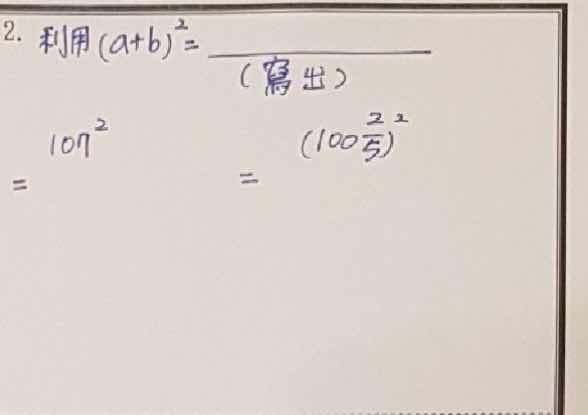 2. 利用(a+b)²= ________
(寫出)
107² (100 2/5)²
= =